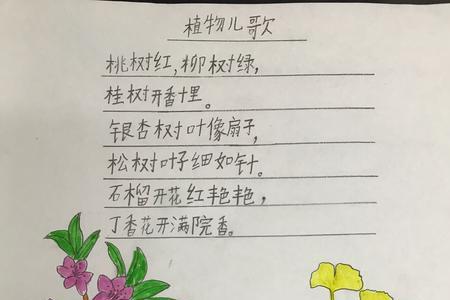 植物儿歌
桃树红,柳树绿,
桂树开香十里。
银杏树叶像扇子,
松树叶子细如针。
石榴开花红艳艳,
丁香花开满院香。